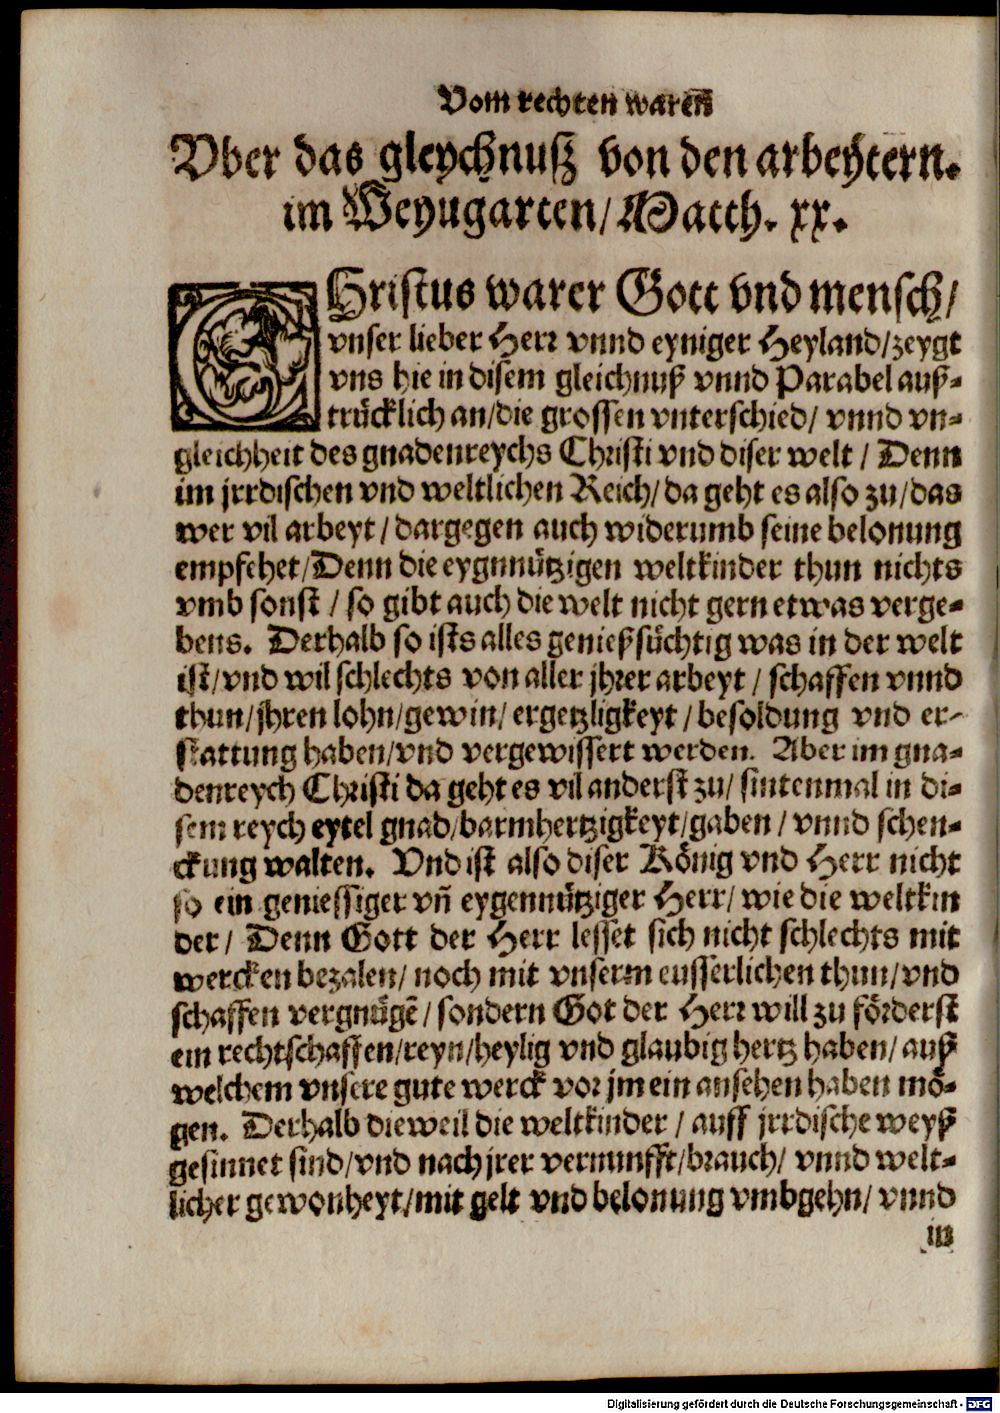 Vom rechten waren̄
Vber das gleychnuß von den arbeytern.
im Weyngarten/ Matth. xx.
CHristus warer Gott vnd mensch/
vnser lieber Herr vnnd eyniger Heyland/zeygt
vns hie in disem gleichnuß vnnd Parabel auß-
trücklich an/die grossen vnterschied/ vnnd vn-
gleichheit des gnadenreychs Christi vnd diser welt / Denn
im jrrdischen vnd weltlichen Reich/ da geht es also zu/das
wer vil arbeyt / dargegen auch widerumb seine belonung
empfehet/Denn die eygnnützigen weltkinder thun nichts
vmb sonst / so gibt auch die welt nicht gern etwas verge-
bens. Derhalb so ists alles genießsüchtig was in der welt
ist/vnd wil schlechts von aller jhrer arbeyt / schaffen vnnd
thun/jhren lohn/gewin/ ergetzligkeyt / besoldung vnd er-
stattung haben/vnd vergewissert werden. Aber im gna-
denreych Christi da geht es vil anderst zu/ sintenmal in di-
sem reych eytel gnad/barmhertzigkeyt/gaben / vnnd schen-
ckung walten. Vnd ist also diser König vnd Herr nicht
so ein geniessiger vn̄ eygennütziger Herr/ wie die weltkin
der/ Denn Gott der Herr lesset sich nicht schlechts mit
wercken bezalen/ noch mit vnserm eusserlichen thun/vnd
schaffen vergnügē / sondern Got der Herr will zu förderst
ein rechtschaffen/reyn/heylig vnd glaubig hertz haben/ auß
welchem vnsere gute werck vor jm ein ansehen haben mö-
gen. Derhalb dieweil die weltkinder / auff jrrdische weyß
gesinnet sind/vnd nach jrer vernunfft/brauch/ vnnd welt-
licher gewonheyt/mit gelt vnd belonung vmbgehn/ vnnd
in
Digitalisierung gefördert durch die Deutsche Forschungsgemeinschaft - DFG